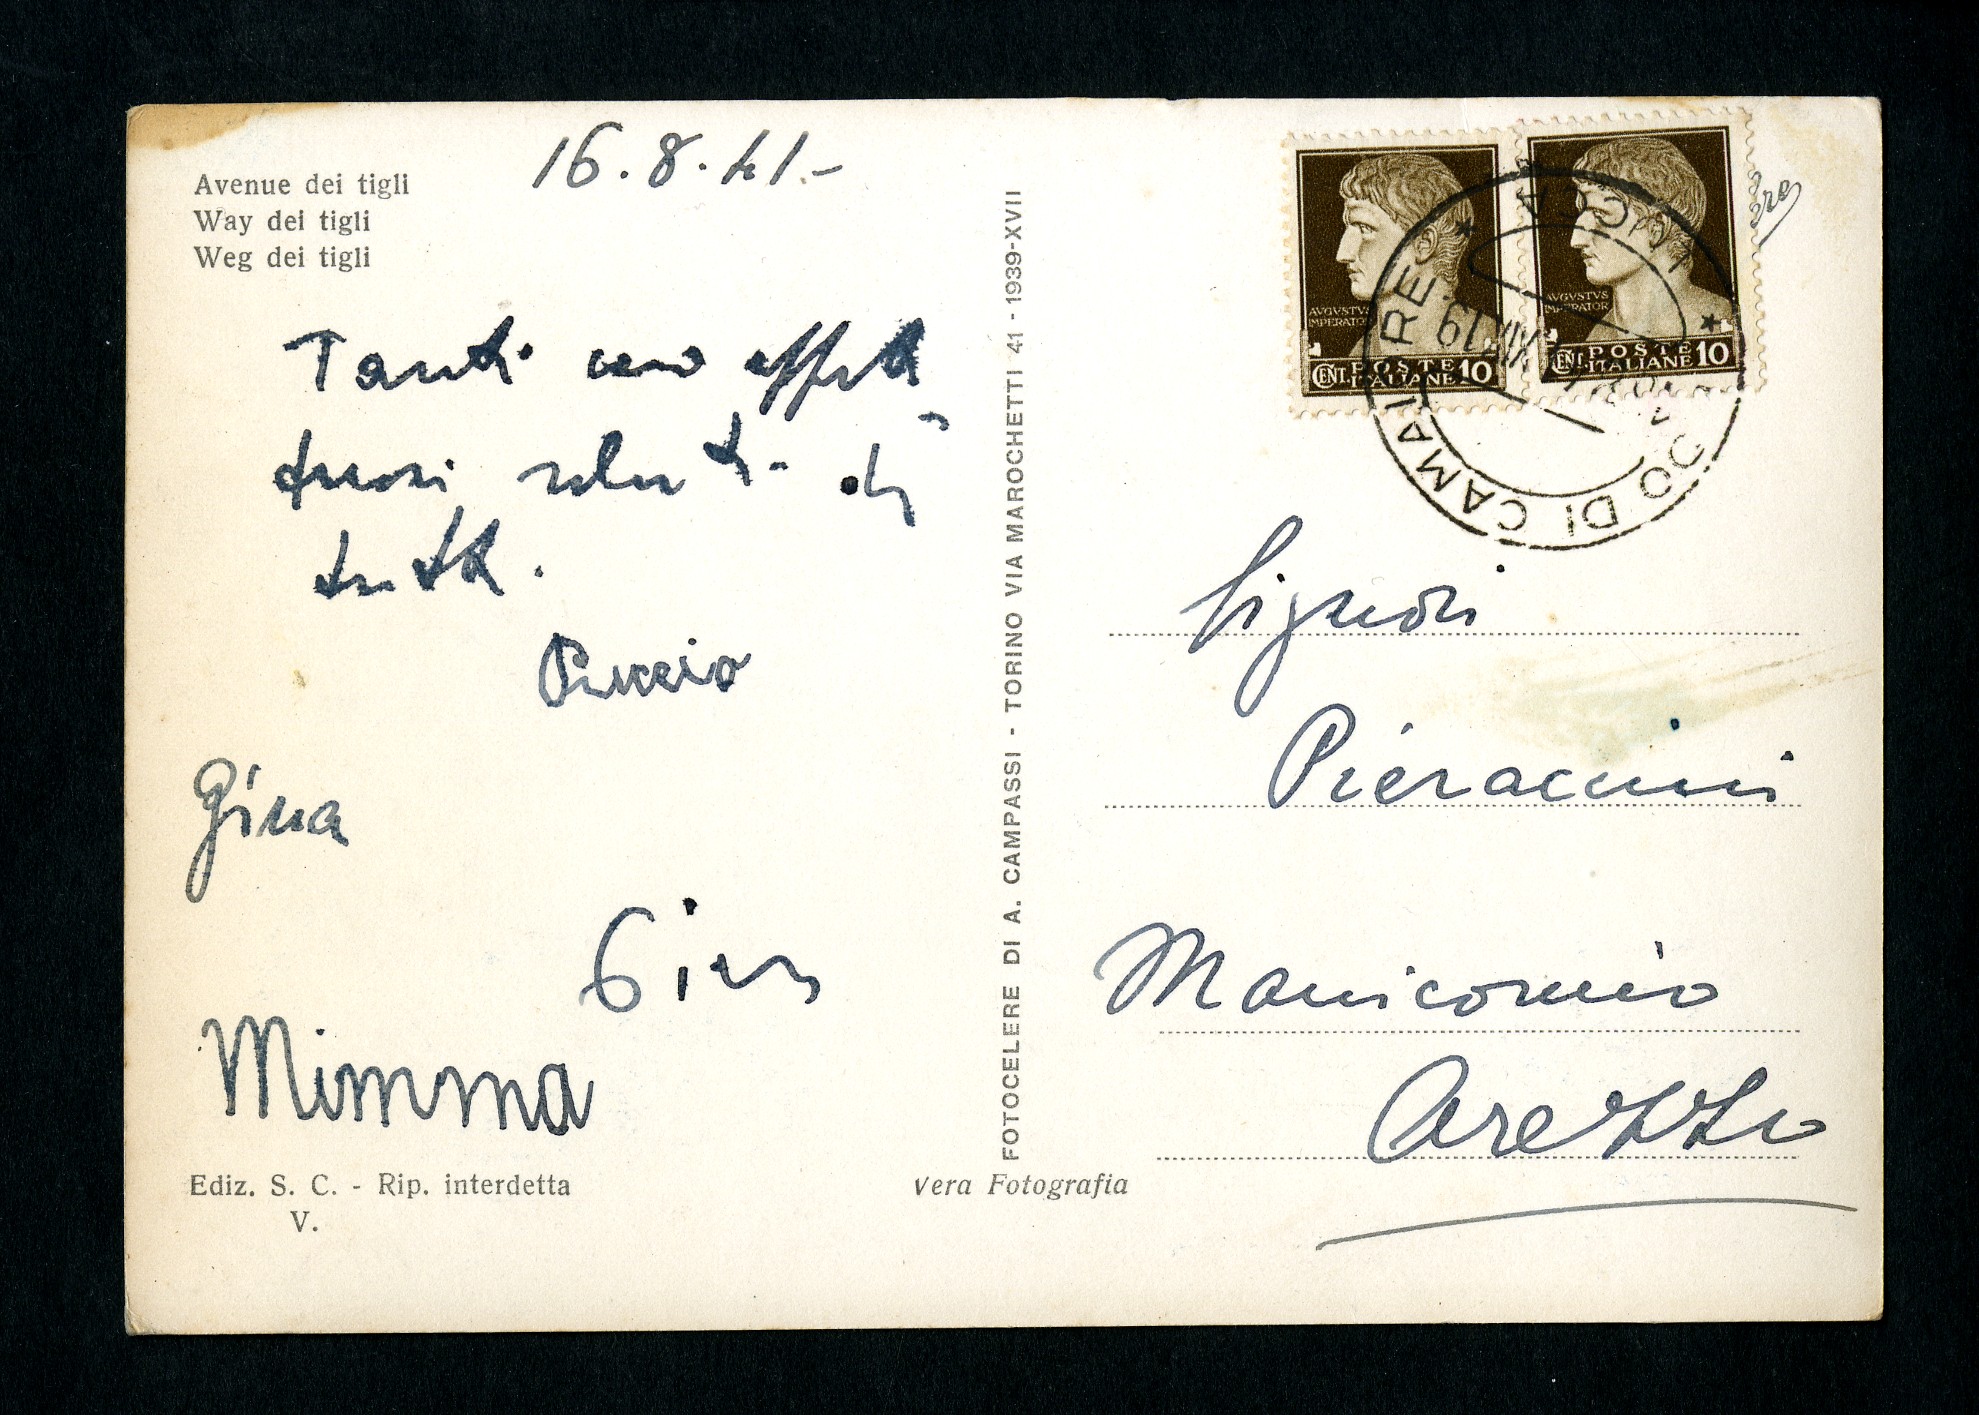 Avenue dei tigli
Way dei tigli
Weg dei tigli
16.8.41.-
Tanti cari affet
tuosi saluti di
tutti.
Puccio
Gina
Mimma
Ediz. S. C. - Rip. interdetta
V.
Vera Fotografia
FOTOCELERE DI A. CAMPASSI - TORINO VIA MAROCHETTI 41 - 1939-XVII
AVGVSTVS
IMPERATOR
CENT. POSTE ITALIANE 10
AVGVSTVS
IMPERATOR
CENT. POSTE ITALIANE 10
DI CAMAIORE * LUCCA *
Signori
Pieraccini
Manicomio
Arezzo